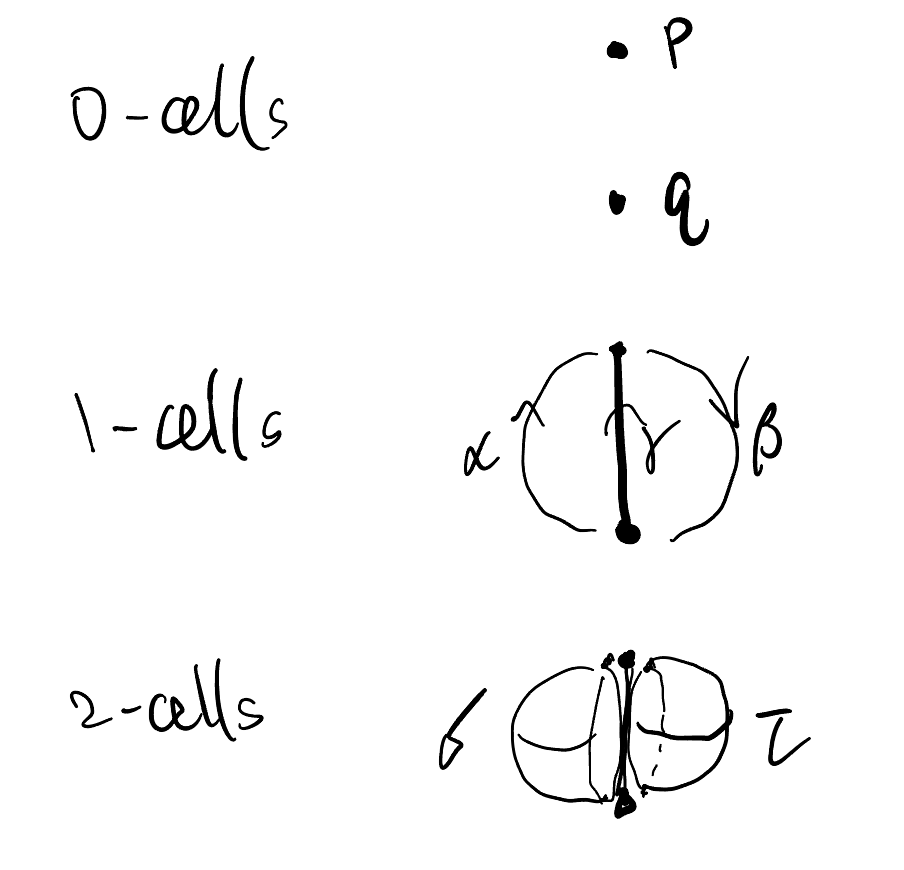 0-cells
p
q
1-cells
α
γ
β
2-cells
σ
τ